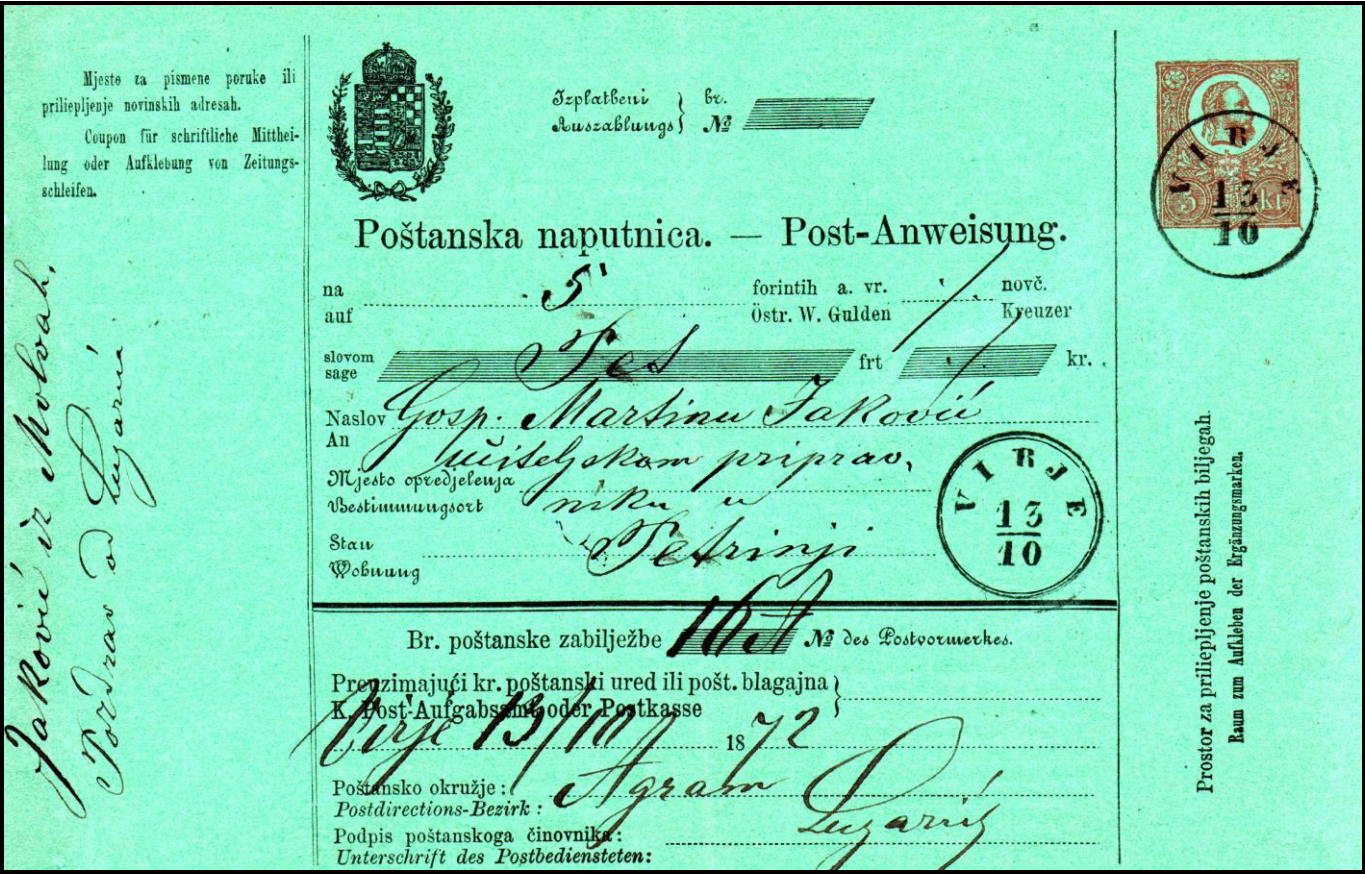 Mjesto za pismene poruke ili
priliepljenje novinskih adresah.
Coupon für schriftliche Mitthei-
lung oder Aufklebung von Zeitungs-
schleifen.
Jaković iz Molvah,
Pozdrav od Lugarića
Izplatbeni } br.
Auszahlungs } №
Poštanska naputnica. — Post-Anweisung.
na 5 forintih a. vr. novč.
auf Östr. W. Gulden Kreuzer
slovom Pet frt kr.
sage
Naslov Gosp. Martinu Jaković
An učiteljskom priprav,
Mjesto opredjelenja
Bestimmungsort niku u
Stan Petrinji
Wohnung
VIRJE
13
10
Br. poštanske zabilježbe 16 № des Postvormerkes.
Preuzimajući kr. poštanski ured ili pošt. blagajna }
K. Post-Aufgabsamt oder Postkasse
Virje 13/10 1872
Poštansko okružje: Agram
Postdirections-Bezirk:
Podpis poštanskoga činovnika: Lugarić
Unterschrift des Postbediensteten:
5 kr
VIRJE
13
10
Prostor za priliepljenje poštanskih biljegah.
Raum zum Aufkleben der Ergänzungsmarken.